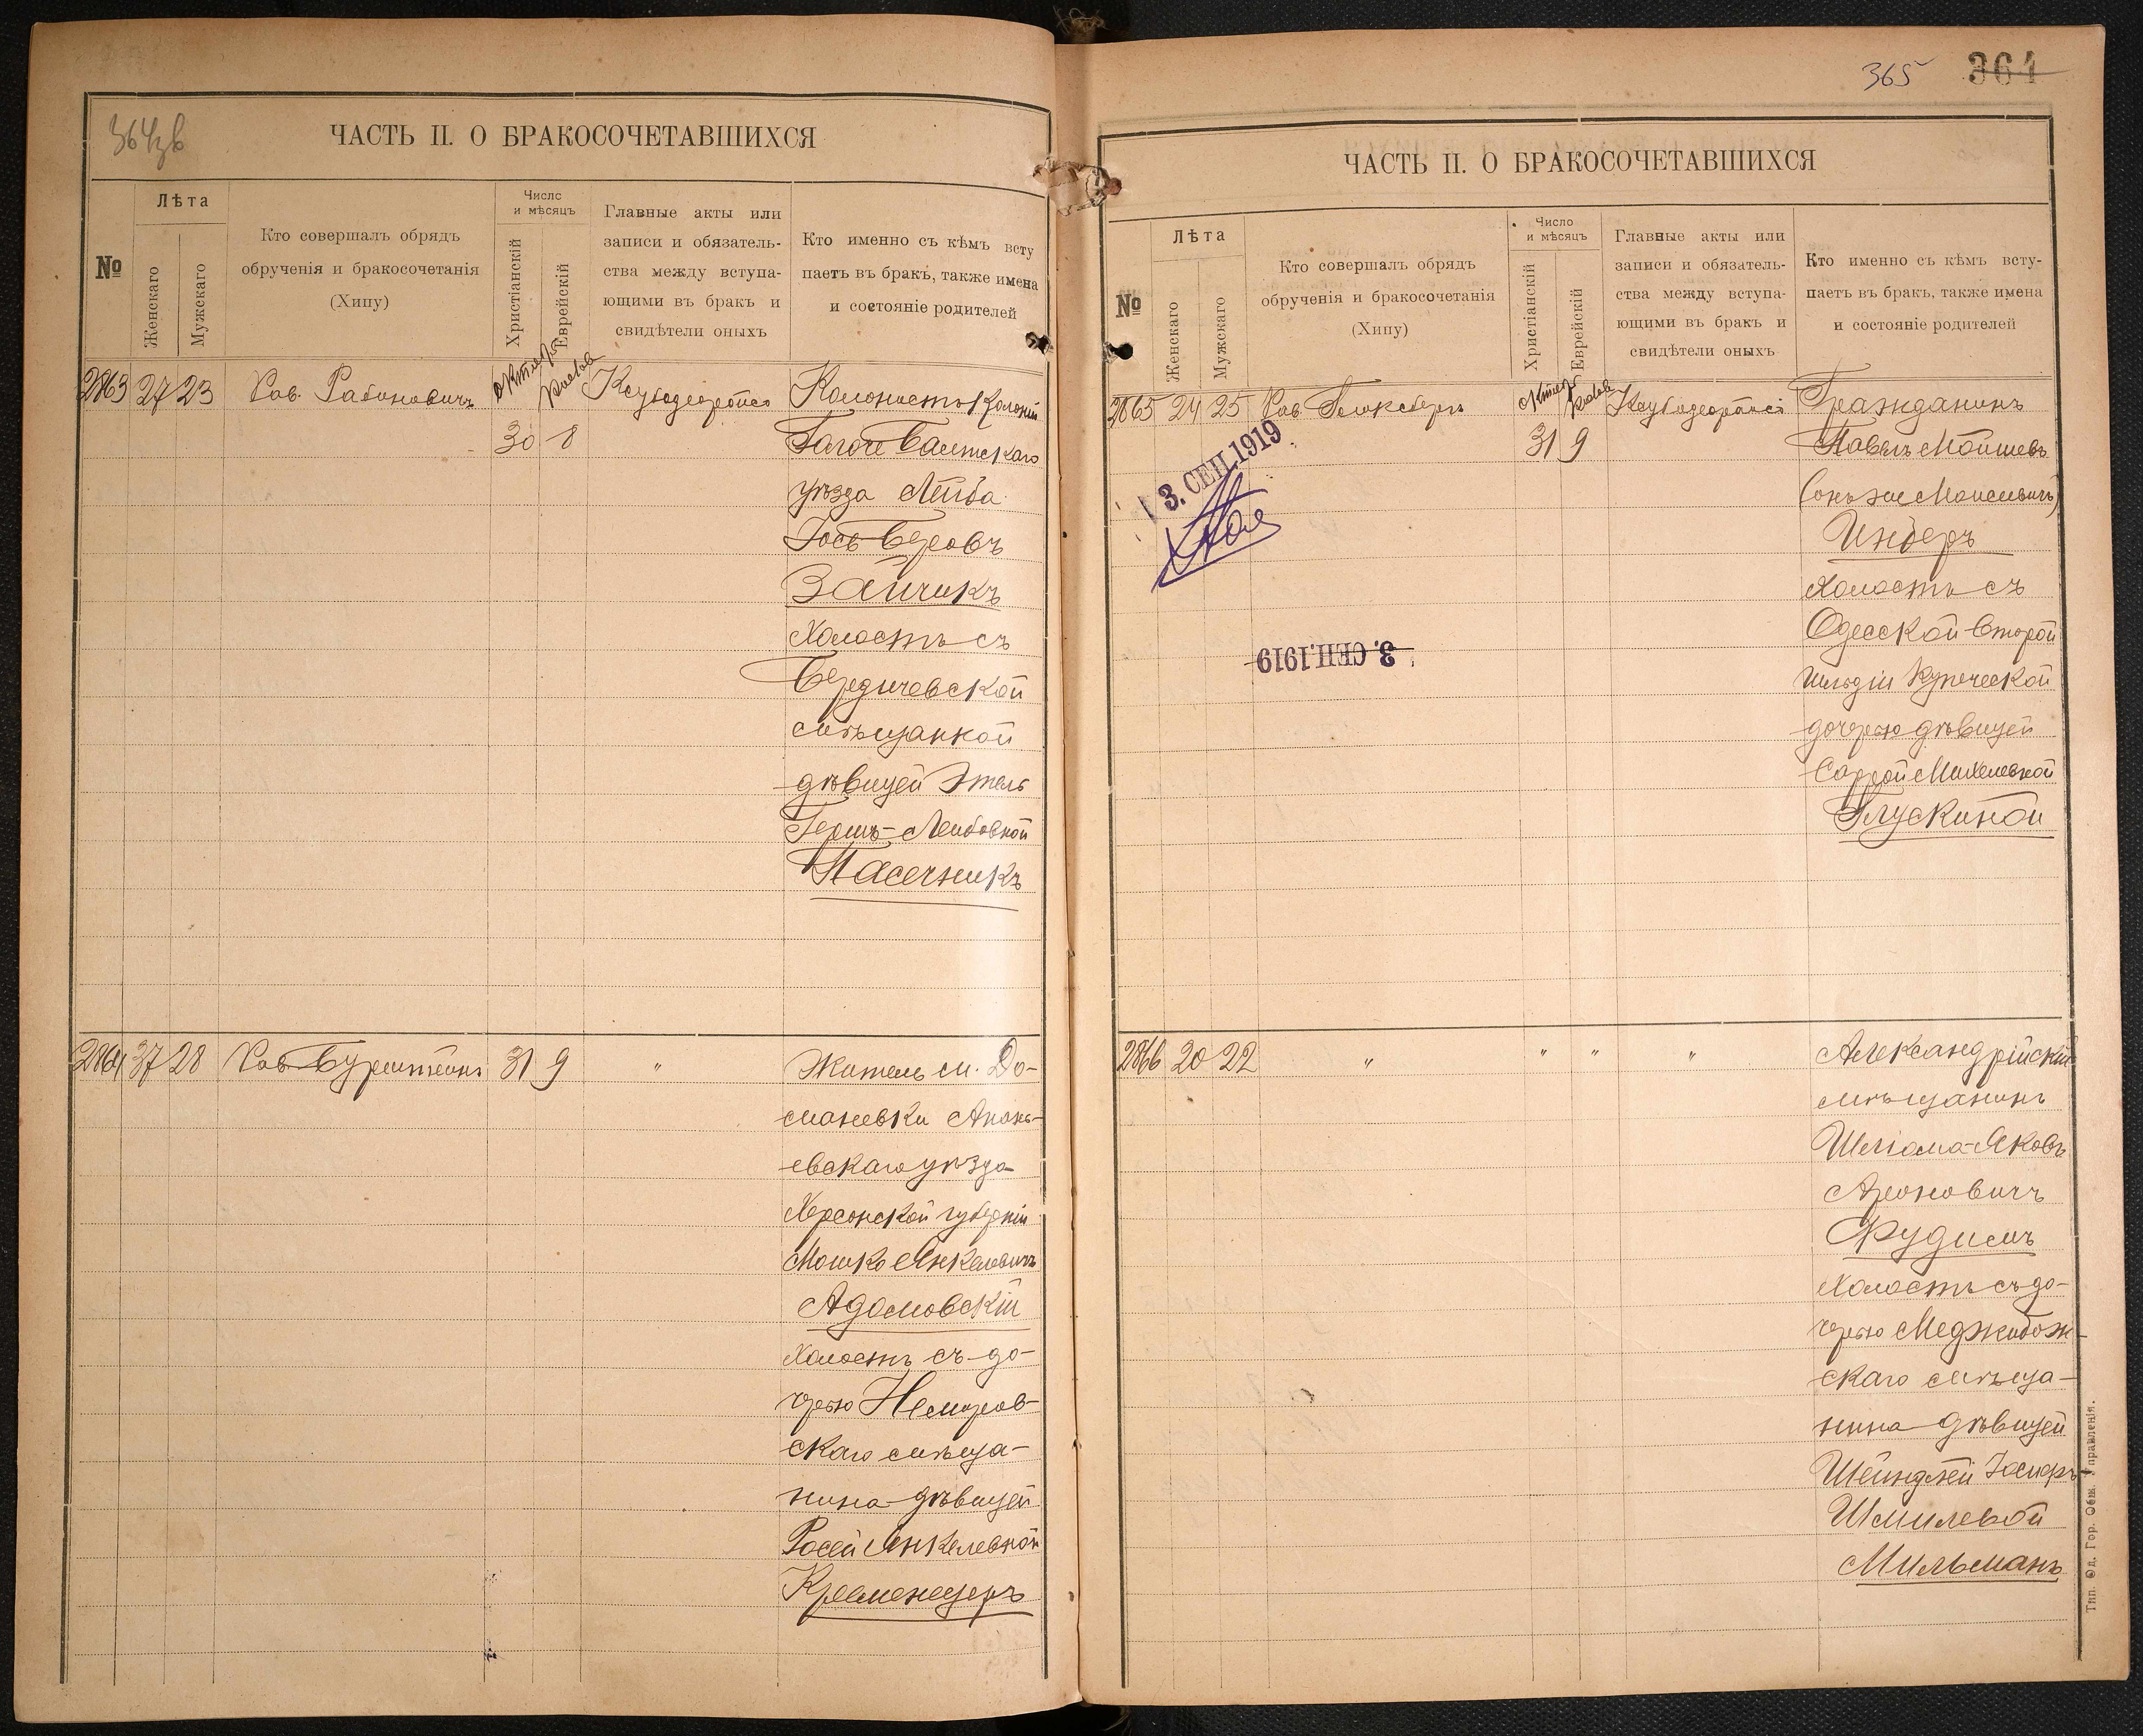 364 зв
ЧАСТЬ II. О БРАКОСОЧЕТАВШИХСЯ
№
Лѣта
Женскаго
Мужскаго
Кто совершалъ обрядъ
обрученія и бракосочетанія
(Хипу)
Число
и мѣсяцъ
Христіанскій
Еврейскій
Главные акты или
записи и обязатель-
ства между вступа-
ющими въ бракъ и
свидѣтели оныхъ
Кто именно съ кѣмъ всту
паетъ въ бракъ, также имена
и состояніе родителей
2863 27 23 Рав. Рабиновичъ
30 8
Колонистъ колоніи
Балтскаго
уѣзда Лейба
Іось Беровъ
Зайчикъ
Холостъ съ
Бердичевской
мѣщанкой
дѣвицей Этель
Гершъ-Лейбовной
Пасечникъ
2864 37 28 Рав Бурштейнъ 31 9 "
Житель м. До-
маневки Анань-
евскаго уѣзда
Херсонской губерніи
Мошко Янкелевичъ
Адамовскій
Холостъ съ до-
черью Немиров-
скаго мѣща-
нина дѣвицей
Росей Янкелевной
Кременецеръ
365 364
ЧАСТЬ II. О БРАКОСОЧЕТАВШИХСЯ
№
Лѣта
Женскаго
Мужскаго
Кто совершалъ обрядъ
обрученія и бракосочетанія
(Хипу)
Число
и мѣсяцъ
Христіанскій
Еврейскій
Главные акты или
записи и обязатель-
ства между вступа-
ющими въ бракъ и
свидѣтели оныхъ
Кто именно съ кѣмъ всту-
паетъ въ бракъ, также имена
и состояніе родителей
2865 24 25 Рав.
31 9
3. СЕП. 1919
3. СЕП. 1919
Гражданинъ
Павелъ Мойшевъ
(онъ же Моисеевичъ)
Инберъ
Холостъ съ
Одесской второй
гильдіи купеческой
дочерью дѣвицей
Саррой Михелевной
Глускиной
2866 20 22 " " " "
Александрійскій
мѣщанинъ
Шліома-Яковъ
Ароновичъ
Фудимъ
Холостъ съ до-
черью Меджибож-
скаго мѣща-
нина дѣвицей
Шейндлей Іосифъ-
Шмилевой
Мильманъ
Тип. Од. Гор. Общ. Управленія.